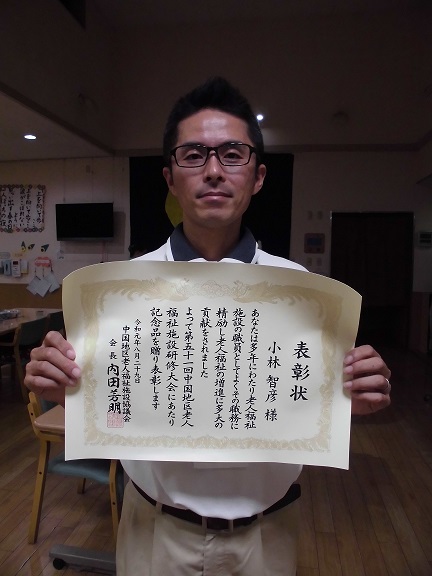 表彰状
小林 智彦 様
あなたは多年にわたり老人福祉
施設の職員としてよくその職務に
精励し老人福祉の増進に多大の
貢献をされました
よって第五十一回中国地区老人
福祉施設研修大会にあたり
記念品を贈り表彰します
令和元年八月二十九日
中国地区老人福祉施設協議会
会長 内田芳明